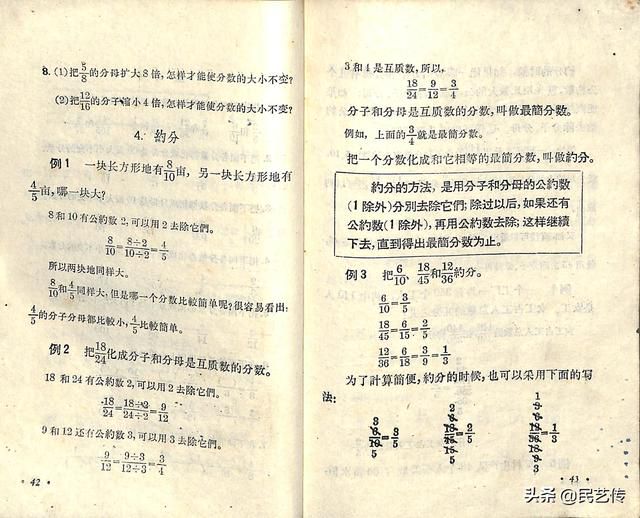 8. (1)把5/8的分母扩大8倍,怎样才能使分数的大小不变?
(2)把12/16的分子縮小4倍,怎样才能使分数的大小不变?
4. 約分
例1 一块长方形地有8/10亩,另一块长方形地有
4/5亩,哪一块大?
8和10有公約数2,可以用2去除它們。
8/10=8÷2/10÷2=4/5
所以两块地同样大。
8/10和4/5同样大,但是哪一个分数比較簡单呢?很容易看出:
4/5的分子分母都比較小,4/5比較簡单。
例2 把18/24化成分子和分母是互质数的分数。
18和24有公約数2,可以用2去除它們。
18/24=18÷2/24÷2=9/12
9和12还有公約数3,可以用3去除它們。
9/12=9÷3/12÷3=3/4
· 42 ·
3和4是互质数,所以,
18/24=9/12=3/4
分子和分母是互质数的分数,叫做最簡分数。
例如,上面的3/4就是最簡分数。
把一个分数化成和它相等的最簡分数,叫做約分。
約分的方法,是用分子和分母的公約数
(1除外)分別去除它們;除过以后,如果还有
公約数(1除外),再用公約数去除;这样继續
下去,直到得出最簡分数为止。
例3 把6/10、18/45和12/36約分。
6/10=3/5
18/45=6/15=2/5
12/36=6/18=3/9=1/3
为了計算簡便,約分的时候,也可以采用下面的写
法:
3
6/10=3/5
5
2
6
18/45=2/5
15
5
1
3
6
12/36=1/3
18
9
3
· 43 ·
头条 @民艺传